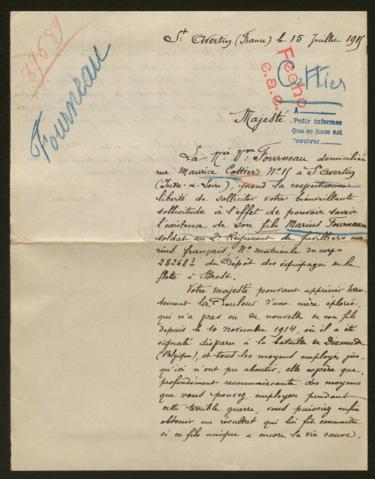 87689
Fourneau
St Avertin (France) le 15 Juillet 1915
Fecho
e.a.c.
Cottier
A
Pedir informes
Que se hace así
Devolver
Majesté.
La Vve Fourneau domiciliée
rue Maurice Cottier No 15 à St Avertin
(Indre-&-Loire), prend la respectueuse
liberté de solliciter votre bienveillante
sollicitude à l'effet de pouvoir savoir
l'existence de son fils Marius Fourneau
soldat au 2e Régiment de fusilliers ma-
rins français, No matricule du corps
28268² du Dépôt des équipages de la
flotte à Brest.
Votre majesté pouvant apprécier hau-
tement la douleur d'une mère éplorée
qui n'a pas eu de nouvelle de son fils
depuis le 10 novembre 1914, où il a été
signalé disparu à la bataille de Dixmude
(Belgique), et tous les moyens employés jus-
qu'ici n'ont pu aboutir, elle espère que
profondément reconnaissante des moyens
que vous pouvez employer pendant
cette terrible guerre, vous puissiez enfin
obtenir un résultat qui lui fit connaître
si ce fils unique a encore la vie sauve.